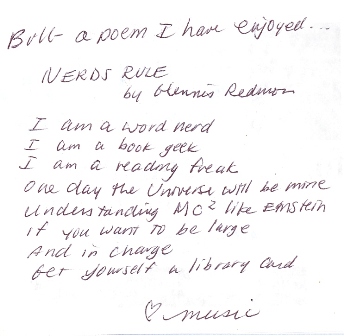 But a poem I have enjoyed...
NERDS RULE
by Glennis Redmon
I am a word nerd
I am a book geek
I am a reading freak
One day the Universe will be mine
Understanding MC² like Einstein
if you want to be large
And in charge
Get yourself a library card
♡ music